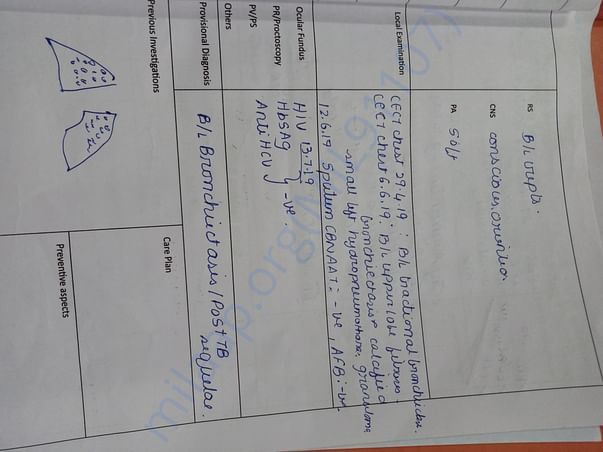 RS B/L crepts.
CNS conscious, oriented.
PA soft
Local Examination
CECT chest 29.4.19 : B/L tractional bronchiectasis.
CECT chest 6.6.19 : B/L upper lobe fibrosis
bronchiectasis & calcified
small left hydropneumothorax, granuloma
12.6.19 Sputum CBNAAT : -ve, AFB : -ve.
Ocular Fundus
HIV 13.7.19
PR/Proctoscopy
HbSAg } -ve.
PV/PS
Anti HCV
Others
Provisional Diagnosis
B/L Bronchiectasis / Post TB
sequelae.
Previous Investigations
Care Plan
Preventive aspects